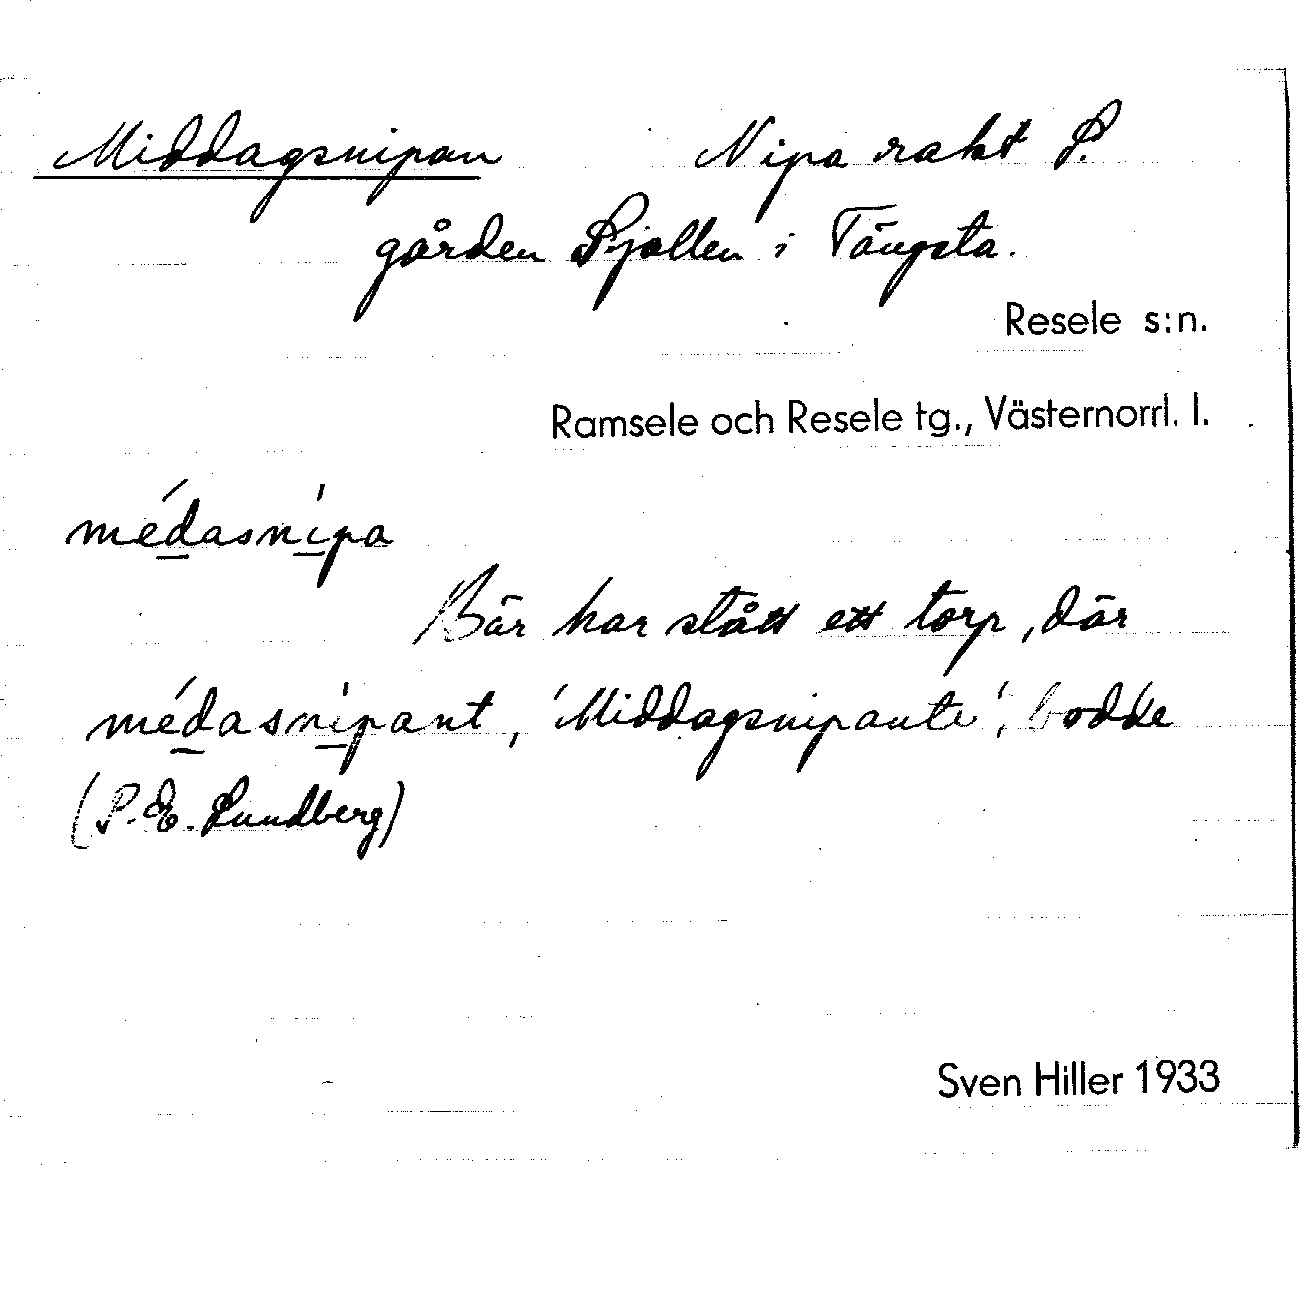 Middagsnipan Nipa rakt S.
gården Pjallen i Tängsta.
Resele s:n.
Ramsele och Resele tg., Västernorrl. l.
médasnípa
Här har stått ett torp, där
médasnípant, 'Middagsnipante', bodde
(P.E. Sundberg)
Sven Hiller 1933